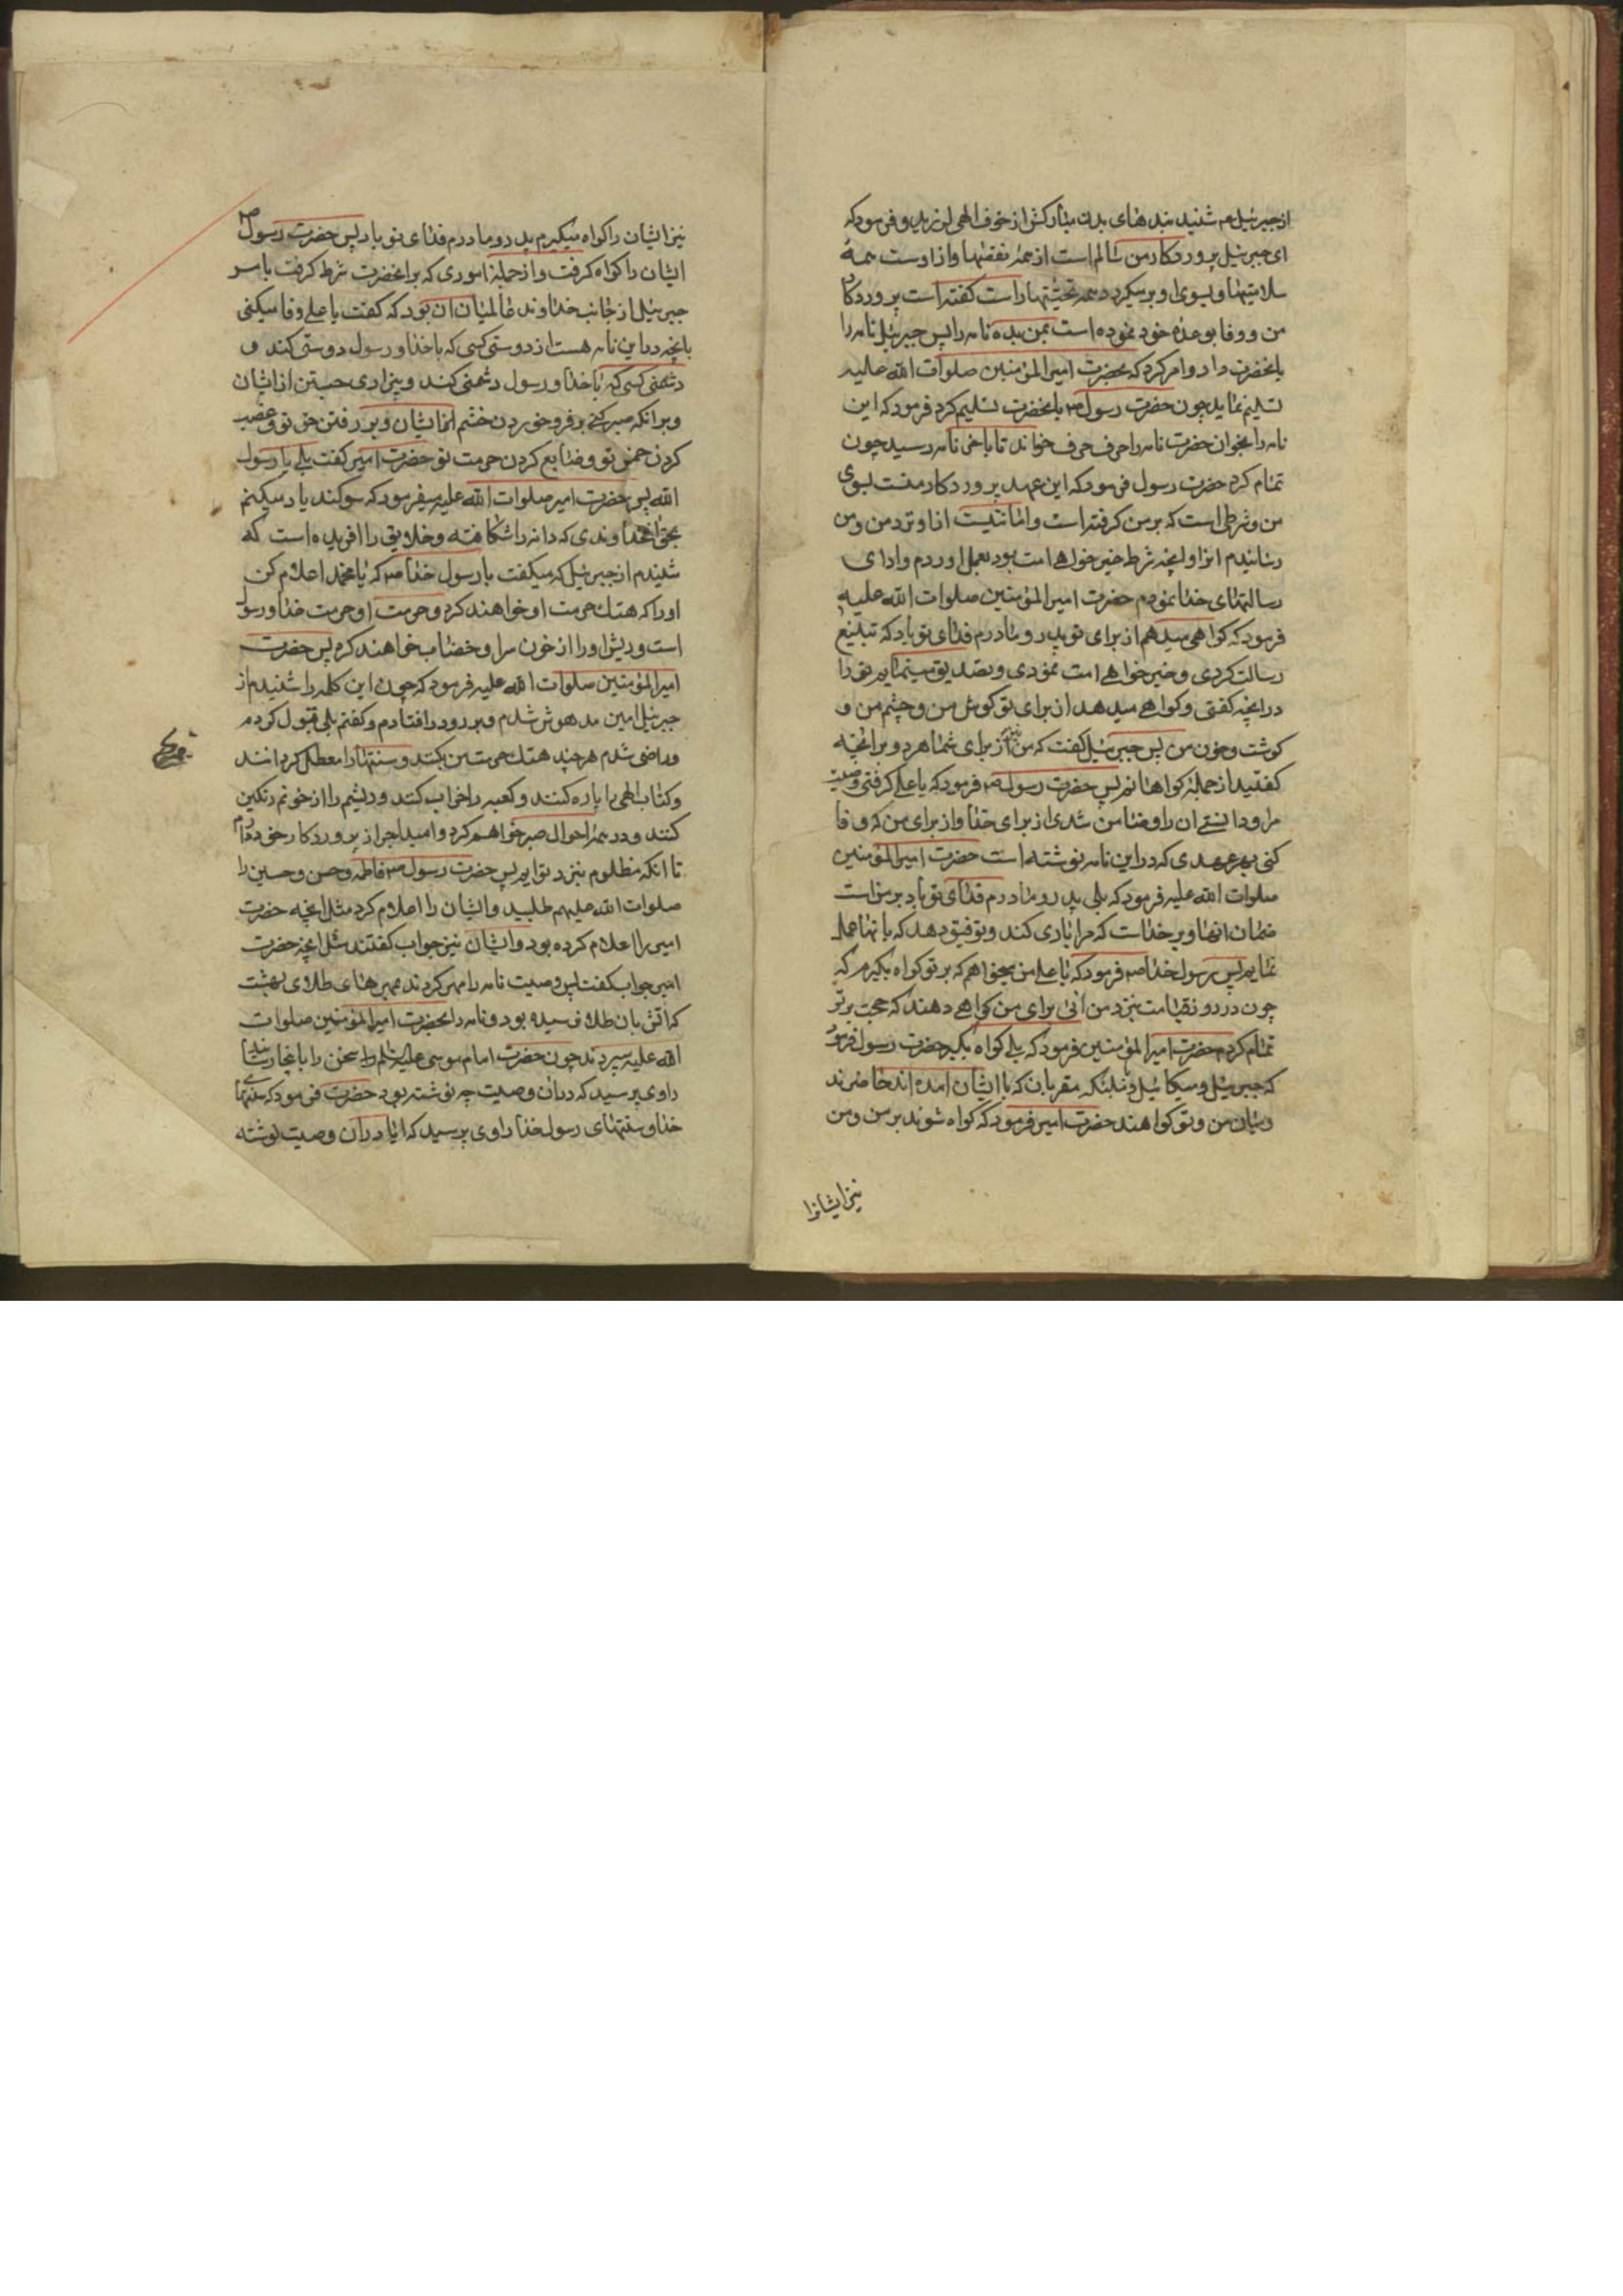 از جبرئیل ع م شنید بندهای بدن مبارکش از خوف الهی لرزید و فرمود که
ای جبرئیل پروردکار من سالم است از همهٔ نقصها و از اوست همهٔ
سلامتیها و بسوی او برمیکردد همه تحیّتها راست کفته است پروردکار
من و وفا بوعدهٔ خود نموده است بمن بده نامه را پس جبرئیل نامه را
بانحضرت داد و امر کرد که بحضرت امیر المؤمنین صلوات الله علیه
تسلیم نماید چون حضرت رسول ص بانحضرت تسلیم کرد فرمود که این
نامه را بخوان حضرت نامه را حرف حرف خواند تا باخر نامه رسید چون
تمام کرد حضرت رسول فرمود که این عهد پروردکار منست بسوی
من و شرطی است که بر من کرفته است و امانتیست از او نزد من و من
رسانیدم انرا و انچه شرط خیر خواهی امت بود بعمل اوردم و ادای
رسالتهای خدا نمودم حضرت امیر المؤمنین صلوات الله علیه
فرمود که کواهی میدهم از برای تو پدر و مادرم فدای تو باد که تبلیغ
رسالت کردی و خیر خواهی امت نمودی و تصدیق مینمایم تو را
در انچه کفتی و کواهی میدهد از برای تو کوش من و چشم من و
کوشت و خون من پس جبرئیل کفت که من نیز از برای شما هر دو بر انچه
کفتید از جمله کواهانم پس حضرت رسول ص فرمود که یا علی کرفتی وصیت
مرا و دانستی ان را و ضامن شدی از برای خدا و از برای من که وفا
کنی بهر عهدی که در این نامه نوشته است حضرت امیر المؤمنین
صلوات الله علیه فرمود که بلی پدر و مادرم فدای تو باد بر من است
ضمان انها و بر خداست که مرا یاری کند و توفیق دهد که بانها عمل
نمایم پس رسول خدا ص فرمود که یا علی من میخواهم که بر تو کواه بکیرم که
چون در روز قیامت بنزد من ائی برای من کواهی دهند که حجت بر تو
تمام کردم حضرت امیر المؤمنین فرمود که بلی کواه بکیر حضرت رسول فرمود
که جبرئیل و میکائیل و ملئکه مقربان که با ایشان امده اند حاضرند
میان من و تو کواهند حضرت امیر فرمود که کواه شوند بر من و من
نیز ایشانرا
نیز ایشان را کواه میکیرم پدر و مادرم فدای تو باد پس حضرت رسول ص
ایشان را کواه کرفت و از جملهٔ اموری که بر انحضرت شرط کرفت بامر
جبرئیل از جانب خداوند عالمیان ان بود که کفت یا علی وفا میکنی
بانچه در این نامه هست از دوستی کسی که با خدا و رسول دوستی کند و
دشمنی کسی که با خدا و رسول دشمنی کند و بیزاری جستن از ایشان
و بر انکه صبر کنی بر فرو خوردن خشم از ایشان و بر رفتن حق تو و غصب
کردن خمس تو و ضایع کردن حرمت تو حضرت امیر کفت بلی یا رسول
الله پس حضرت امیر صلوات الله علیه میفرمود که سوکند یاد میکنم
بحق انخداوندی که دانه را شکافته و خلایق را افریده است که
شنیدم از جبرئیل که میکفت با رسول خدا ص که یا محمد اعلام کن
او را که هتک حرمت او خواهند کرد و حرمت او حرمت خدا و رسول
است و ریش او را از خون سر او خضاب خواهند کرد پس حضرت
امیر المؤمنین صلوات الله علیه فرمود که چون این کلمه را شنیدم از
جبرئیل امین مدهوش شدم و بر رو در افتادم و کفتم بلی قبول کردم
و راضی شدم هر چند هتک حرمت من بکنند و سنتها را معطل کردانند
و کتاب الهی را پاره کنند و کعبه را خراب کنند و ریشم را از خونم رنکین
کنند و در همهٔ احوال صبر خواهم کرد و امید اجر از پروردکار خود دارم
تا انکه مظلوم بنزد تو ایم پس حضرت رسول ص فاطمه و حسن و حسین را
صلوات الله علیهم طلبید و ایشان را اعلام کرد مثل انچه حضرت
امیر را اعلام کرده بود و ایشان نیز جواب کفتند مثل انچه حضرت
امیر جواب کفت پس وصیت نامه را مهر کردند بمهرهای طلای بهشت
که اتش بان طلا نرسیده بود و نامه را بحضرت امیر المؤمنین صلوات
الله علیه سپردند چون حضرت امام موسی علیه السلم این سخن را بانجا رسانید
راوی پرسید که در ان وصیت چه نوشته بود حضرت فرمود که سنتهای
خدا و سنتهای رسول خدا راوی پرسید که ایا در ان وصیت نوشته